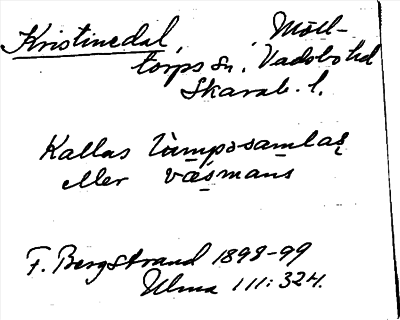 Kristinedal, Möll-
torps sn, Vadsbo hd
Skarab. l.
Kallas lũmposamlaꝛ
eller väśmans
F. Bergstrand 1898-99
Ulma 111:324.